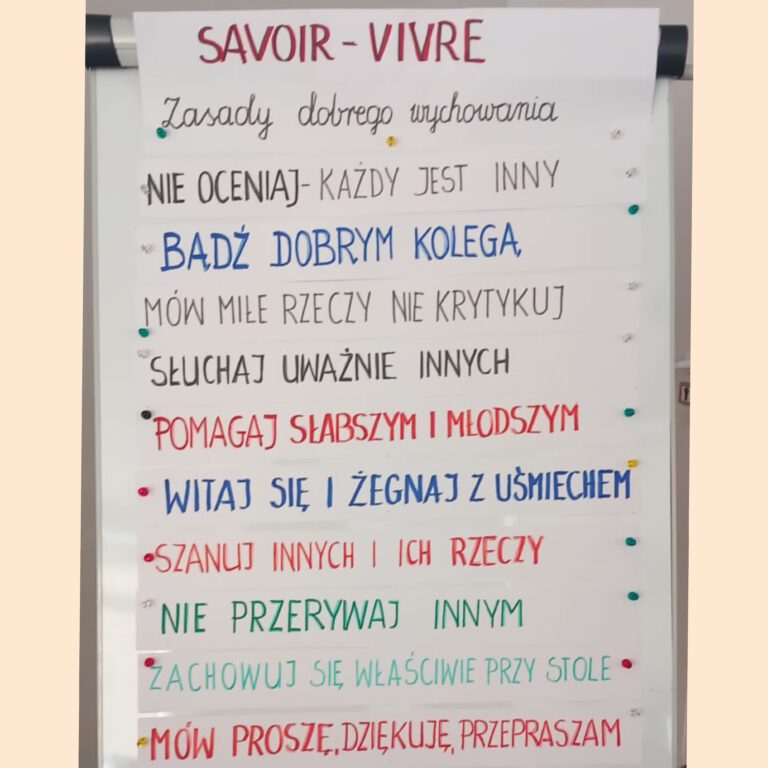 SAVOIR - VIVRE
Zasady dobrego wychowania
NIE OCENIAJ - KAŻDY JEST INNY
BĄDŹ DOBRYM KOLEGĄ
MÓW MIŁE RZECZY NIE KRYTYKUJ
SŁUCHAJ UWAŻNIE INNYCH
POMAGAJ SŁABSZYM I MŁODSZYM
WITAJ SIĘ I ŻEGNAJ Z UŚMIECHEM
SZANUJ INNYCH I ICH RZECZY
NIE PRZERYWAJ INNYM
ZACHOWUJ SIĘ WŁAŚCIWIE PRZY STOLE
MÓW PROSZĘ, DZIĘKUJĘ, PRZEPRASZAM